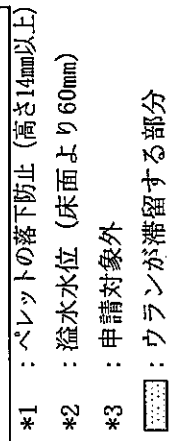 *1 : ペレットの落下防止 (高さ14mm以上)
*2 : 溢水水位 (床面より60mm)
*3 : 申請対象外
: ウランが滞留する部分